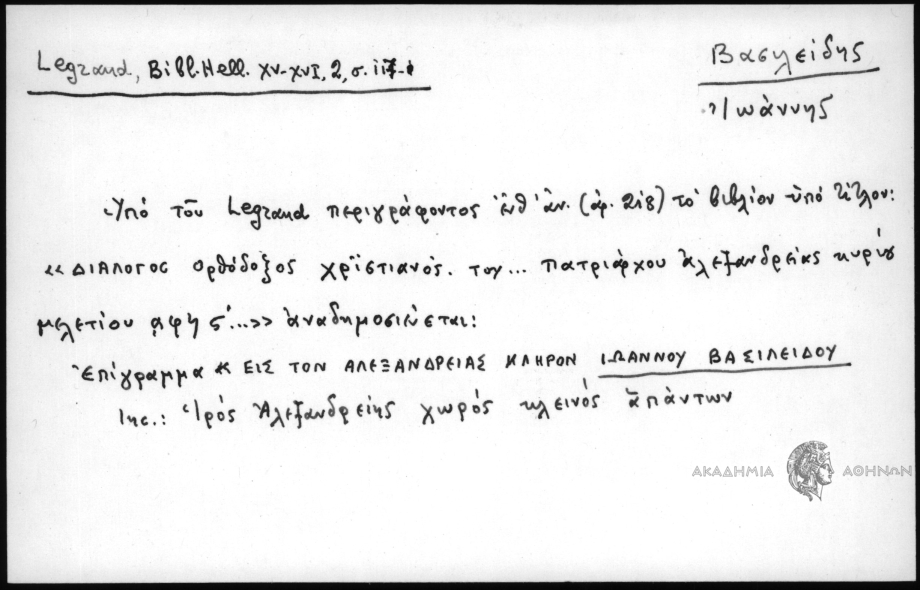 Legrand, Bibl. Hell. XV-XVI, 2, σ. 117
Βασιλείδης
Ἰωάννης
Ὑπό τοῦ Legrand περιγράφοντος ἐνθ' ἀν. (ἀρ. 218) τό βιβλίον ὑπό τίτλον:
«ΔΙΑΛΟΓΟΣ ορθόδοξος χρϊστιανός. του... πατριάρχου ἀλεξανδρείας κυρίου
μελετίου αφϟς´...» ἀναδημοσιεύεται:
Ἐπίγραμμα « ΕΙΣ ΤΟΝ ΑΛΕΞΑΝΔΡΕΙΑΣ ΚΛΗΡΟΝ ΙΩΑΝΝΟΥ ΒΑΣΙΛΕΙΔΟΥ
Inc.: Ἱρός Ἀλεξανδρείης χωρός κλεινός ἁπάντων
ΑΚΑΔΗΜΙΑ ΑΘΗΝΩΝ